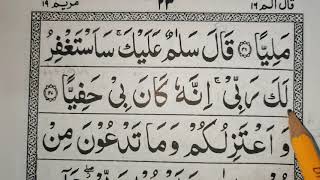 قال الم ١٦ ٢٣ مريم ١٩
مَلِيًّا قَالَ سَلٰمٌ عَلَيْكَ ۚ سَاَسْتَغْفِرُ
لَكَ رَبِّيْ ؕ اِنَّهٗ كَانَ بِيْ حَفِيًّا
وَ اَعْتَزِلُكُمْ وَ مَا تَدْعُوْنَ مِنْ